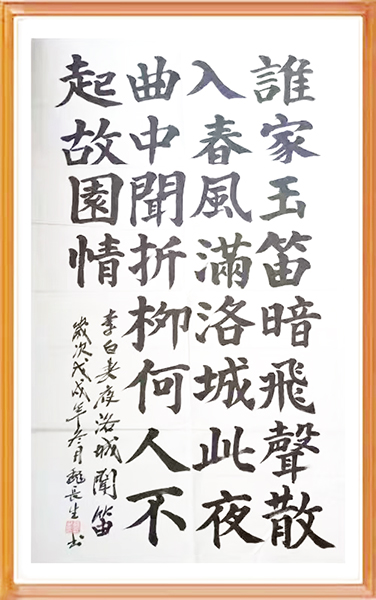 誰家玉笛暗飛聲散
入春風滿洛城此夜
曲中聞折柳何人不
起故園情
李白春夜洛城聞笛
歲次戊戌年叁月魏長生书